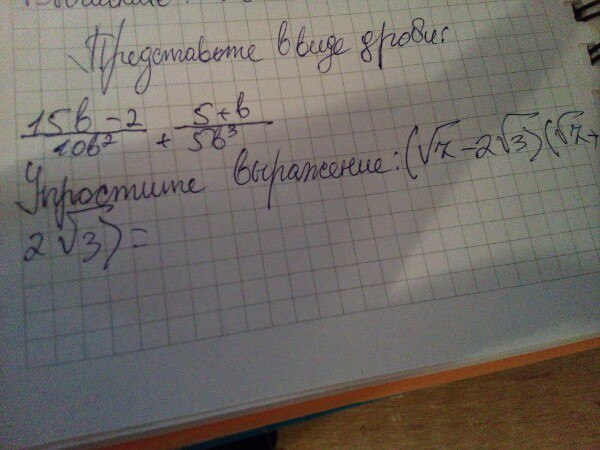 Представьте в виде дроби:
15b-2/10b² + 5+b/5b³
Упростите выражение: (√7-2√3)(√7+
2√3)=